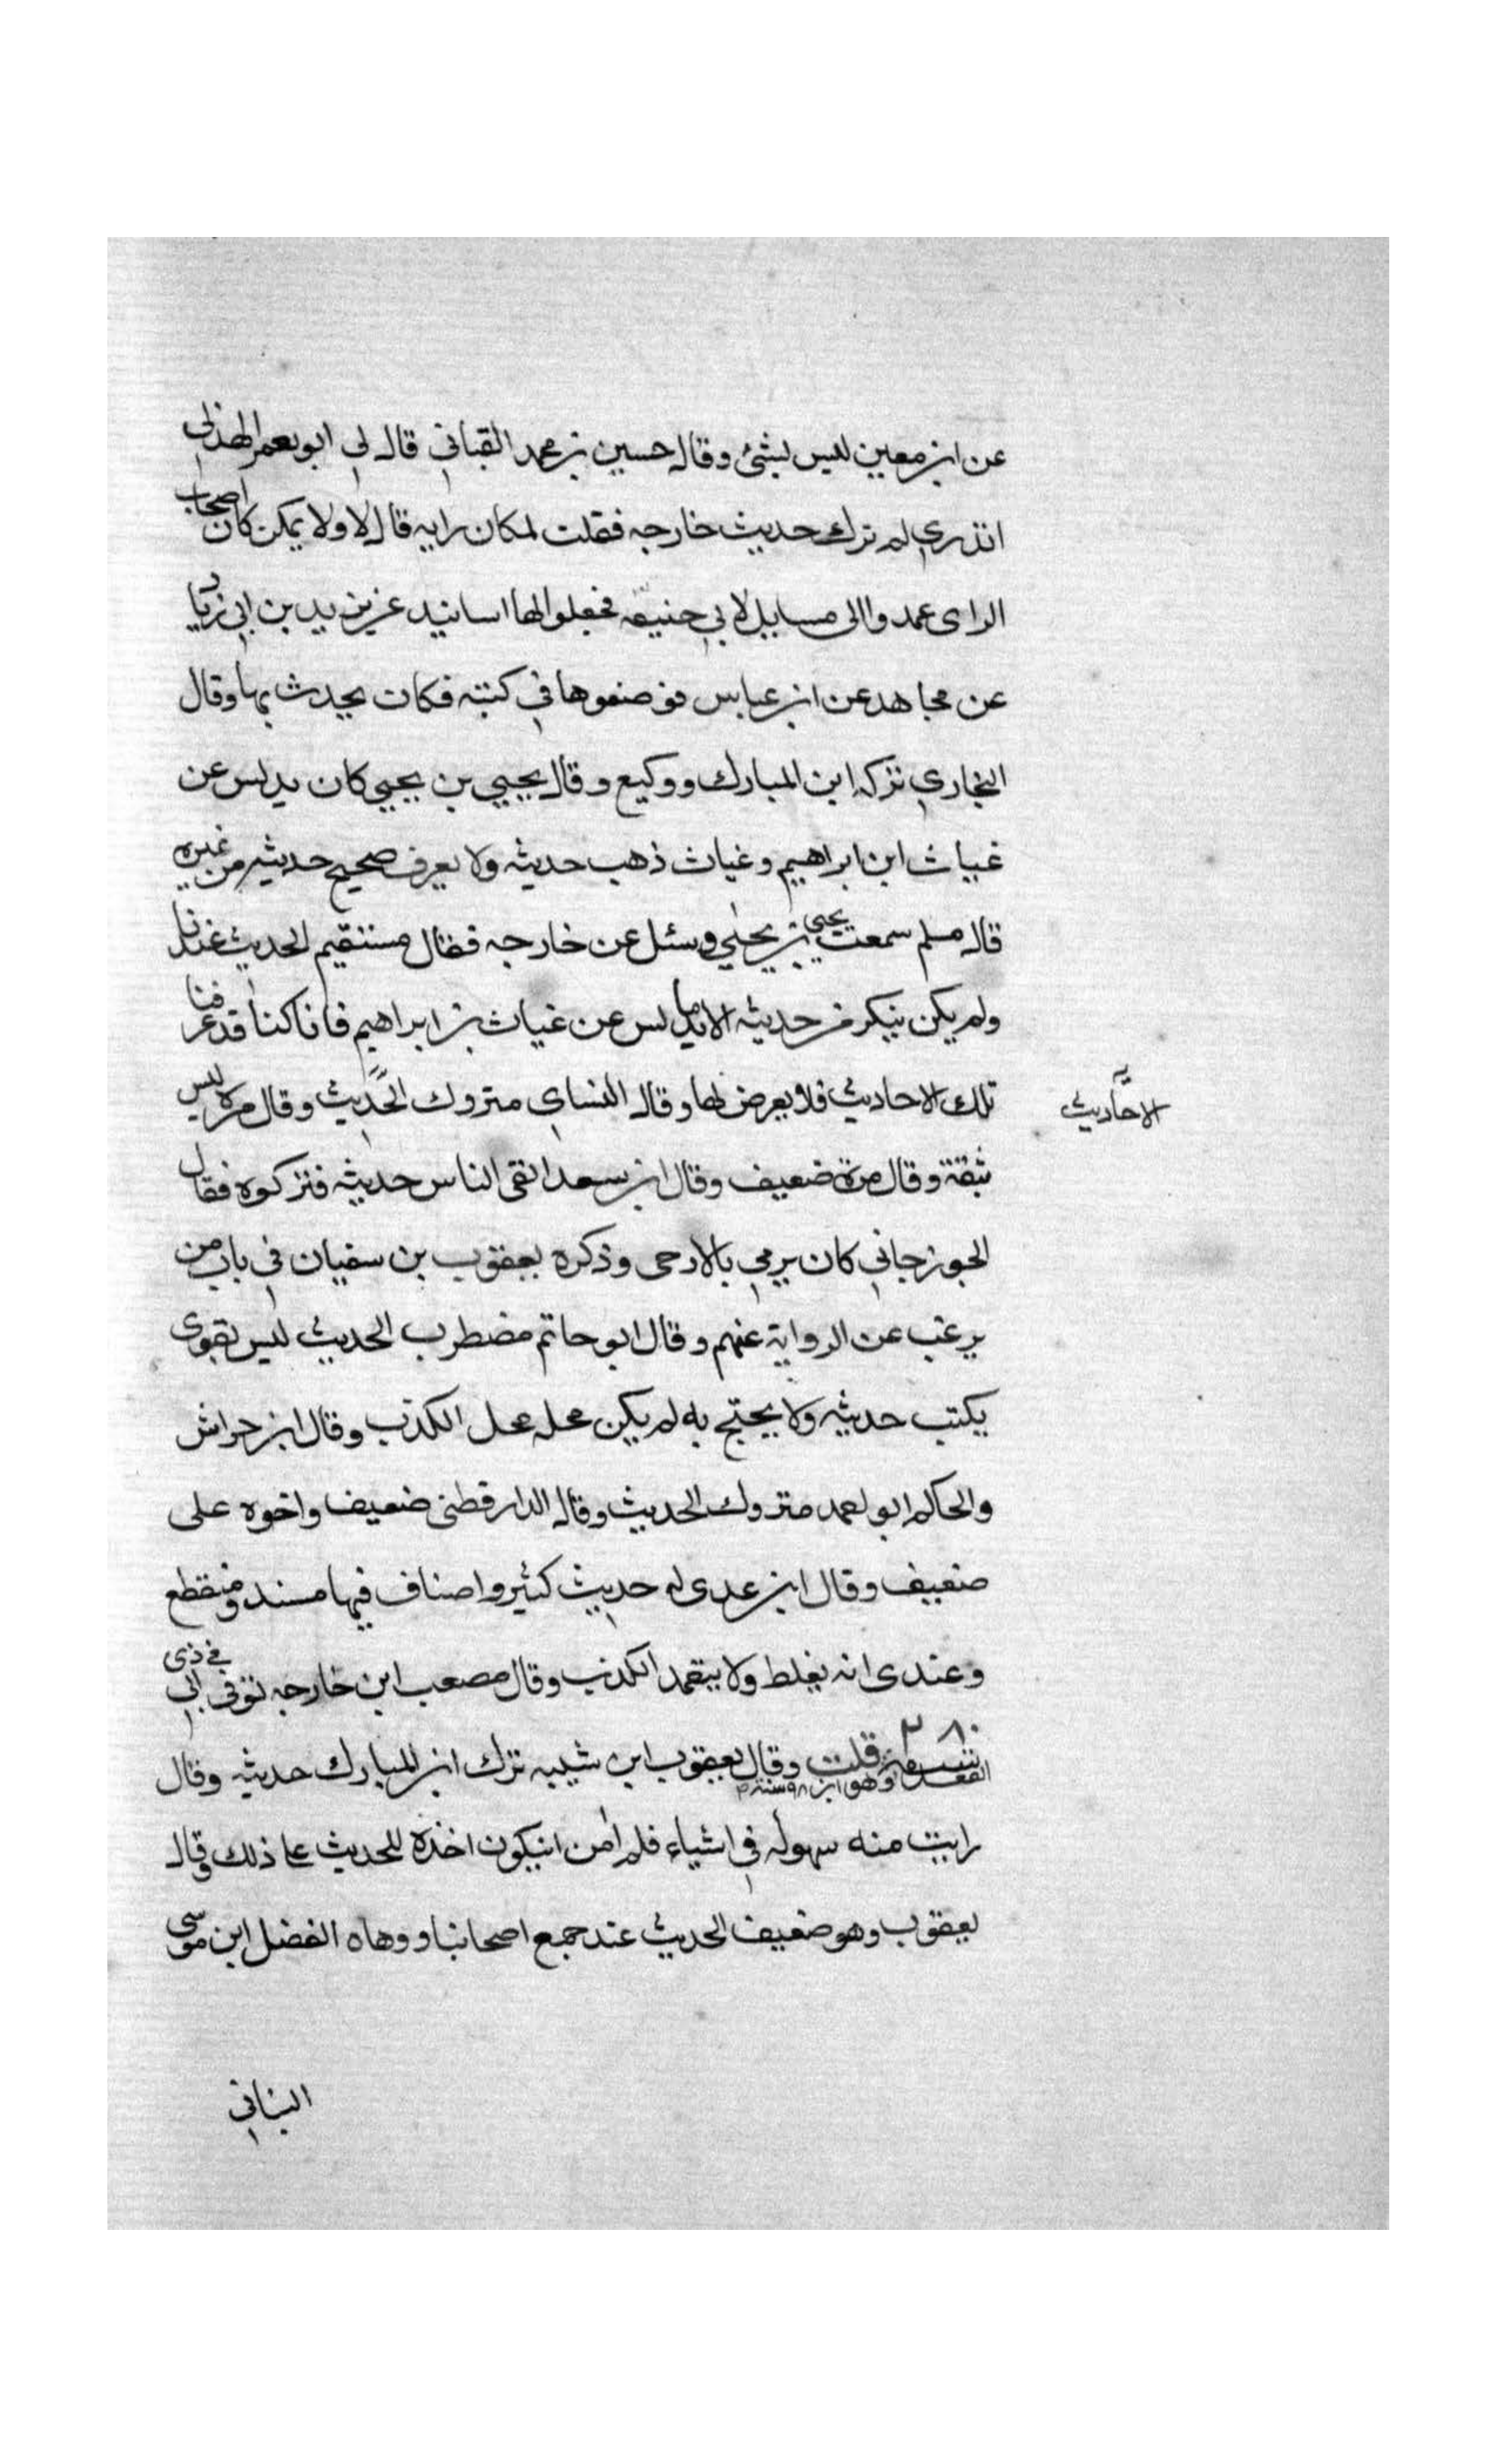 عن ابن معين ليس بشئ وقال حسين بن محمد القباني قال لي ابو معمر الهذلي
اتدري لم ترك حديث خارجه فقلت لمكان رايه قال لا ولا يمكن كان اصحاب
الراى عمدوا الى مسايل لابي حنيفه فجعلوا لها اسانيد عن يزيد بن ابي زياد
عن مجاهد عن ابن عباس فوضعوها في كتبه فكان يحدث بها وقال
البخاري تركه ابن المبارك ووكيع وقال يحيي بن يحيي كان يدلس عن
غياث ابن ابراهيم وغياث ذهب حديثه ولا يعرف صحيح حديثه من غيره
قال مسلم سمعت يحيى بن يحيي وسئل عن خارجه فقال مستقيم الحديث عندنا
ولم يكن ينكر من حديثه الا ما يدلس عن غياث بن ابراهيم فانا كنا قد عرفنا
تلك الاحاديث فلا يعرض لها وقال النساي متروك الحديث وقال مره ليس
الاحاديث
بثقة وقال مرة ضعيف وقال ابن سعد اتقى الناس حديثه فتركوه فقال
الجوزجاني كان يرمي بالارجى وذكره يعقوب بن سفيان في باب من
يرغب عن الرواية عنهم وقال ابو حاتم مضطرب الحديث ليس بقوى
يكتب حديثه ولا يحتج به لم يكن محله محل الكذب وقال ابن خراش
والحاكم ابو احمد متروك الحديث وقال الدارقطنى ضعيف واخوه على
ضعيف وقال ابن عدى له حديث كثير واصناف فيها مسند ومنقطع
وعندى انه يغلط ولا يتعمد الكذب وقال مصعب ابن خارجه توفي ابي في ذى
القعده وهو ابن ٩٨ سنه قلت وقال يعقوب ابن شيبه ترك ابن المبارك حديثه وقال
رايت منه سهوله في اشياء فلم امن ان يكون اخذه للحديث علي ذلك وقال
يعقوب وهو ضعيف الحديث عند جمع اصحابنا ووهاه الفضل ابن موسى
البناني